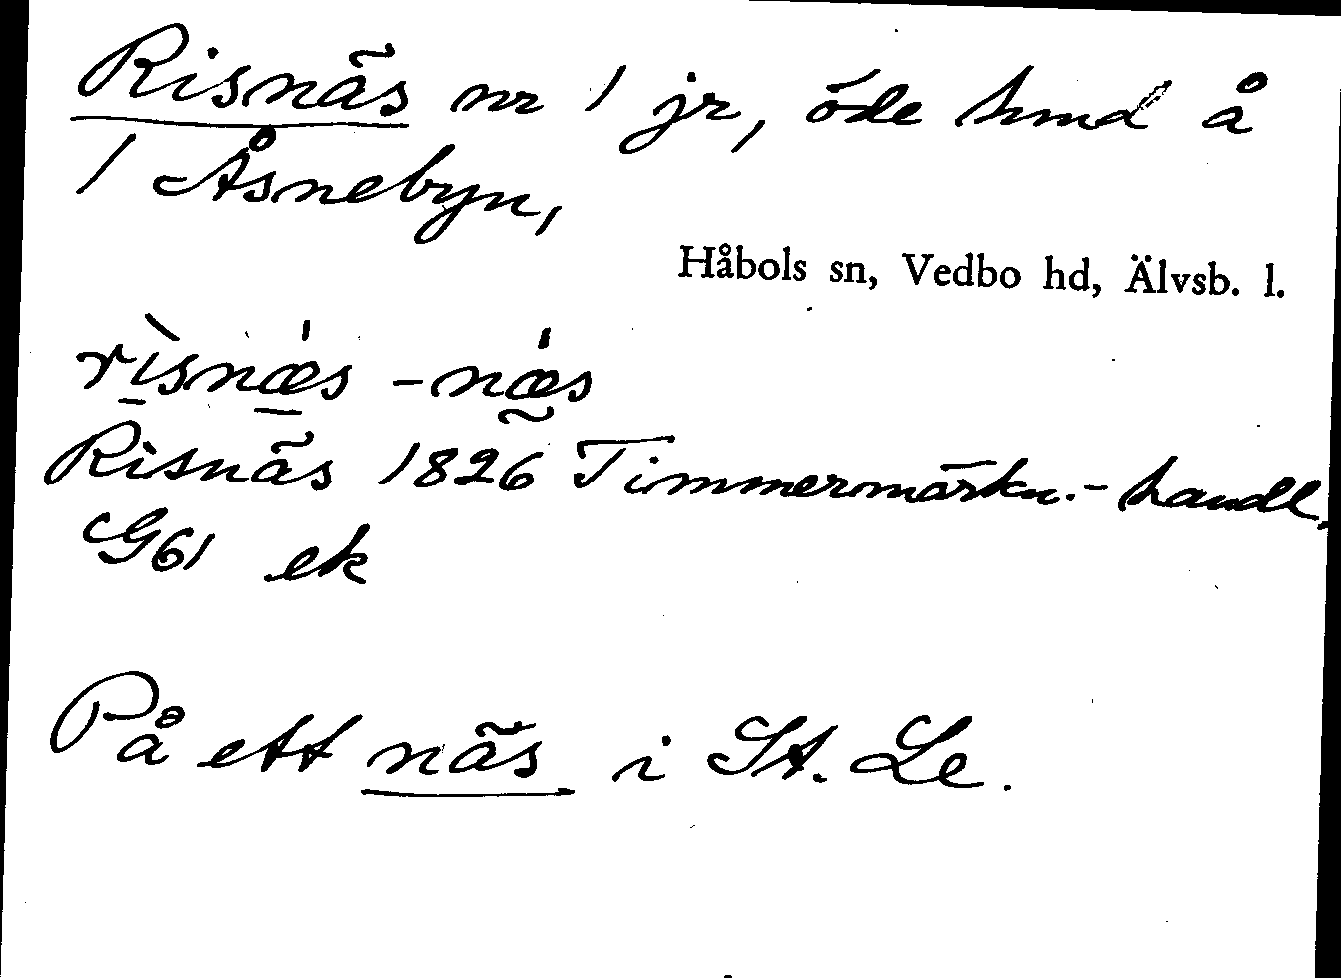 Risnäs nr 1 jr, öde hmd å
1 Åsnebyn,
Håbols sn, Vedbo hd, Älvsb. l.
rìsnæ̠s -næ̰s
Risnäs 1826 Timmermärkn.-handl.
G61 ek
På ett näs i St. Le.